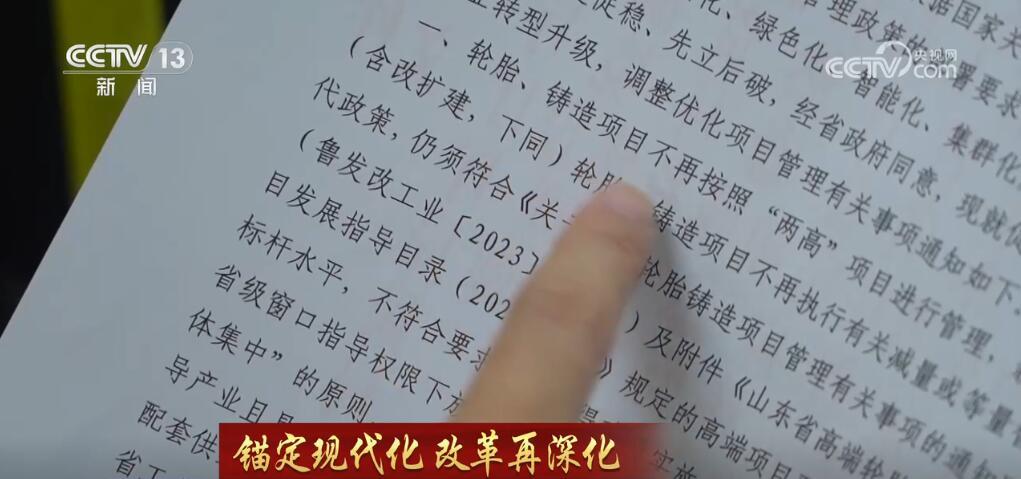 CCTV 13
新闻
央视网
CCTV.com
据国家关
管理政策的 署要求
化、绿色化、智能化、集群化
促稳、先立后破，经省政府同意，现就促
业转型升级，调整优化项目管理有关事项通知如下。
一、轮胎、铸造项目不再按照“两高”项目进行管理，
（含改扩建，下同）轮胎 铸造项目不再执行有关减量或等量
代政策，仍须符合《关 轮胎铸造项目管理有关事项的通知
（鲁发改工业〔2023〕 ）及附件《山东省高端轮胎
目发展指导目录（202 》规定的高端项目
标杆水平，不符合要求
省级窗口指导权限下放 实施
体集中”的原则，
导产业且
配套供
省工
锚定现代化 改革再深化